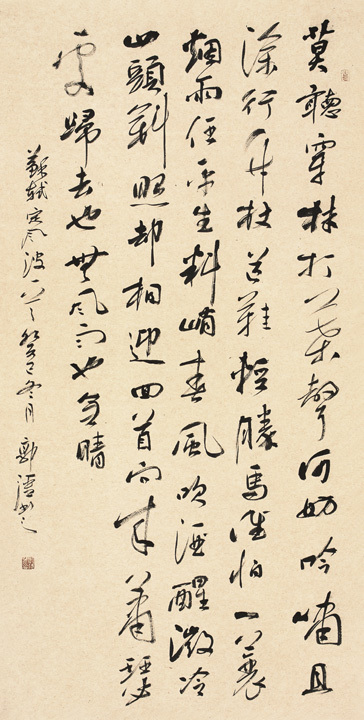 莫聽穿林打葉聲何妨吟嘯且
徐行竹杖芒鞋輕勝馬誰怕一蓑
烟雨任平生料峭春風吹酒醒微冷
山頭斜照却相迎回首向來蕭瑟
處歸去也無風雨也無晴
蘇軾定風波一首癸巳冬月鄭書之